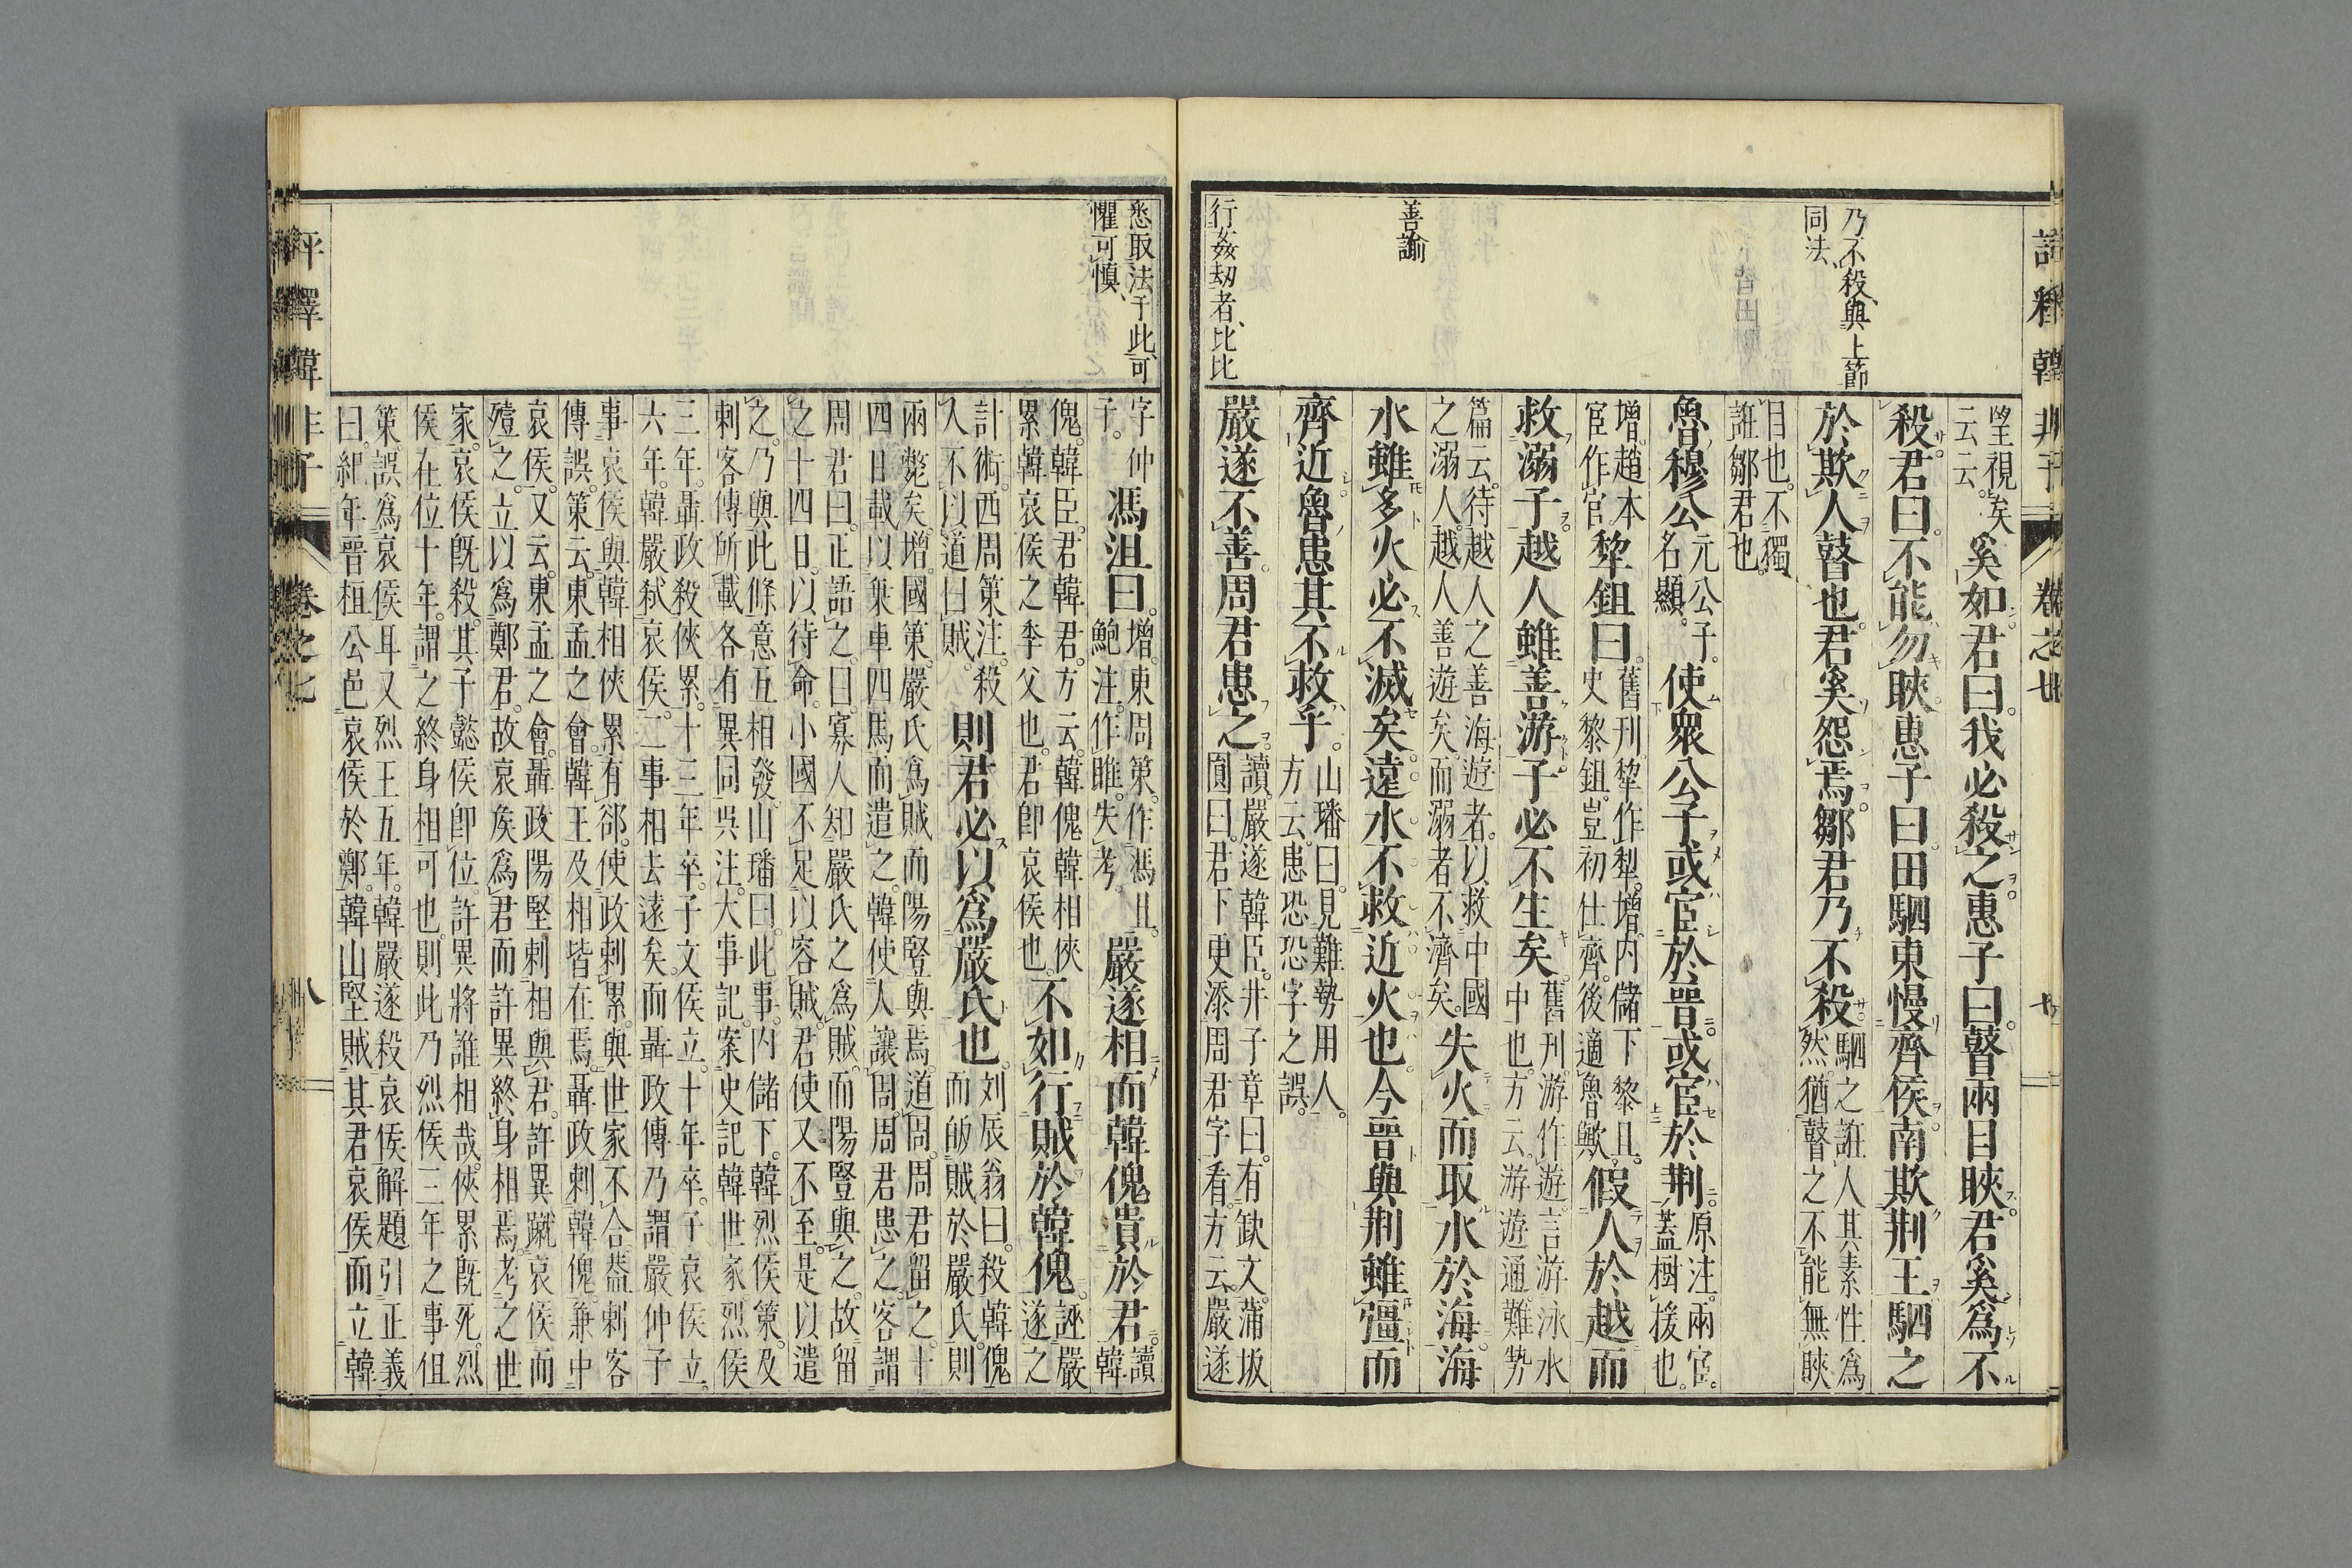 評釋韓非子
卷之七
七
乃不殺與上節
同法
善諭
行姦刧者比比
望視矣
云云。
奚如君曰。我必殺之惠子曰。瞽兩目䀹。君奚爲不
殺。君曰。不能勿䀹。惠子曰。田駟東慢齊侯。南欺荆王。駟之
於欺人瞽也。君奚怨焉。鄒君乃不殺。
駟之誑人其素性爲
然。猶瞽之不能無䀹
目也。不獨
誑鄒君也。
魯穆公
元公子。
名顯。
使衆公子或宦於晉。或宦於荆。
原注。兩宦。
蓋樹援也。
增。趙本。
宦作官。
犂鉏曰。
舊刊。犂作犁。增。内儲下黎且。
史黎鉏。豈初仕齊。後適魯歟。
假人於越而
救溺子。越人雖善游。子必不生矣。
舊刊。游作遊。言游泳水
中也。方云。游遊通。難勢
篇云。待越人之善海遊者。以救中國
之溺人。越人善遊矣。而溺者不濟矣。
失火而取水於海。海
水雖多。火必不滅矣。遠水不救近火也。今晉與荆雖彊。而
齊近。魯患其不救乎。
山璠曰。見難勢用人。
方云。患恐恐字之誤。
嚴遂不善周君。患之。
讀。嚴遂韓臣。井子章曰。有欽文。蒲坂
圓曰。君下更添周君字看。方云。嚴遂
悉取法于此可
懼可愼
字仲
子。
馮沮曰。
增。東周策。作馮且。
鮑注。作雎。失考。
嚴遂相。而韓傀貴於君。
讀韓
傀。韓臣。君韓君。方云。韓傀韓相俠
累韓哀侯之季父也。君卽哀侯也。
不如行賊於韓傀。
誣嚴
遂之
計術。西周策注。殺
人不以道曰賊。
則君必以爲嚴氏也。
刘辰翁曰。殺韓傀
而皈賊於嚴氏。則
兩斃矣。增。國策。嚴氏爲賊。而陽豎與焉。道周。周君留之。十
四日載以乗車四馬而遣之。韓使人讓周。周君患之。客謂
周君曰。正語之。曰。寡人知嚴氏之爲賊。而陽豎與之。故留
之十四日。以待命。小國不足以容賊。君使又不至。是以遣
之。乃與此條意互相發。山璠曰。此事。内儲下。韓烈侯。策。及
刺客傳所載。各有異同。呉注。大事記。案史記韓世家。烈侯
三年。聶政殺俠累。十三年卒。子文侯立。十年卒。子哀侯立。
六年。韓嚴弑哀侯。二事相去遠矣。而聶政傳乃謂嚴仲子
事哀侯。與韓相俠累有郤。使政刺累。與世家不合。蓋刺客
傳誤。策云。東孟之會。韓王及相皆在焉。聶政刺韓傀兼中
哀侯。又云。東孟之會。聶政陽堅刺相與君。許異蹴哀侯而
殪之。立以爲鄭君。故哀矦爲君。而許異終身相焉。考之世
家。哀侯旣殺。其子懿侯卽位。許異將誰相哉。俠累旣死。烈
侯在位十年。謂之終身相可也。則此乃烈侯三年之事。但
策誤爲哀侯耳。又烈王五年。韓嚴遂殺哀侯。解題引正義
曰。紀年晉桓公邑哀侯於鄭。韓山堅賊其君哀侯而立韓
評釋韓非子
卷之七
八